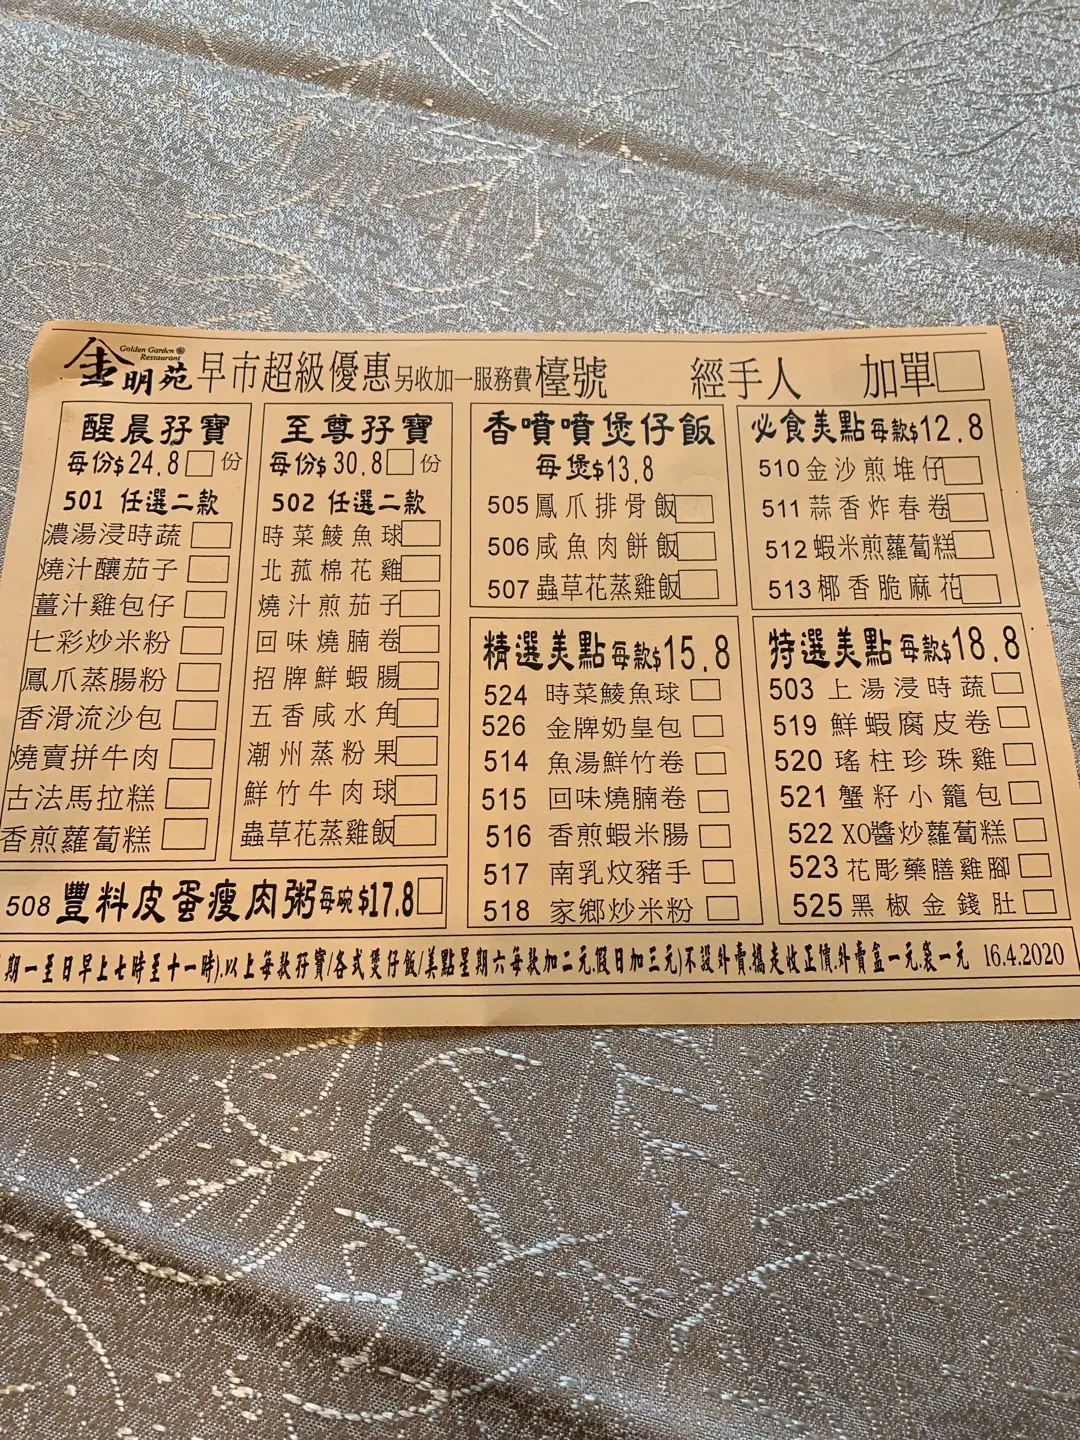 金明苑 Golden Garden Restaurant 早市超級優惠 另收加一服務費 檯號 經手人 加單
醒晨孖寶
每份$24.8 份
501 任選二款
濃湯浸時蔬
燒汁釀茄子
薑汁雞包仔
七彩炒米粉
鳳爪蒸腸粉
香滑流沙包
燒賣拼牛肉
古法馬拉糕
香煎蘿蔔糕
至尊孖寶
每份$30.8 份
502 任選二款
時菜鯪魚球
北菰棉花雞
燒汁煎茄子
回味燒腩卷
招牌鮮蝦腸
五香咸水角
潮州蒸粉果
鮮竹牛肉球
蟲草花蒸雞飯
508 豐料皮蛋瘦肉粥 每碗$17.8
香噴噴煲仔飯
每煲$13.8
505 鳳爪排骨飯
506 咸魚肉餅飯
507 蟲草花蒸雞飯
精選美點 每款$15.8
524 時菜鯪魚球
526 金牌奶皇包
514 魚湯鮮竹卷
515 回味燒腩卷
516 香煎蝦米腸
517 南乳炆豬手
518 家鄉炒米粉
必食美點 每款$12.8
510 金沙煎堆仔
511 蒜香炸春卷
512 蝦米煎蘿蔔糕
513 椰香脆麻花
特選美點 每款$18.8
503 上湯浸時蔬
519 鮮蝦腐皮卷
520 瑤柱珍珠雞
521 蟹籽小籠包
522 XO醬炒蘿蔔糕
523 花彫藥膳雞腳
525 黑椒金錢肚
期一至日早上七時至十一時).以上每款孖寶/各式煲仔飯/美點星期六每款加二元.假日加三元)不設外賣.攜走收正價.外賣盒一元.袋一元 16.4.2020